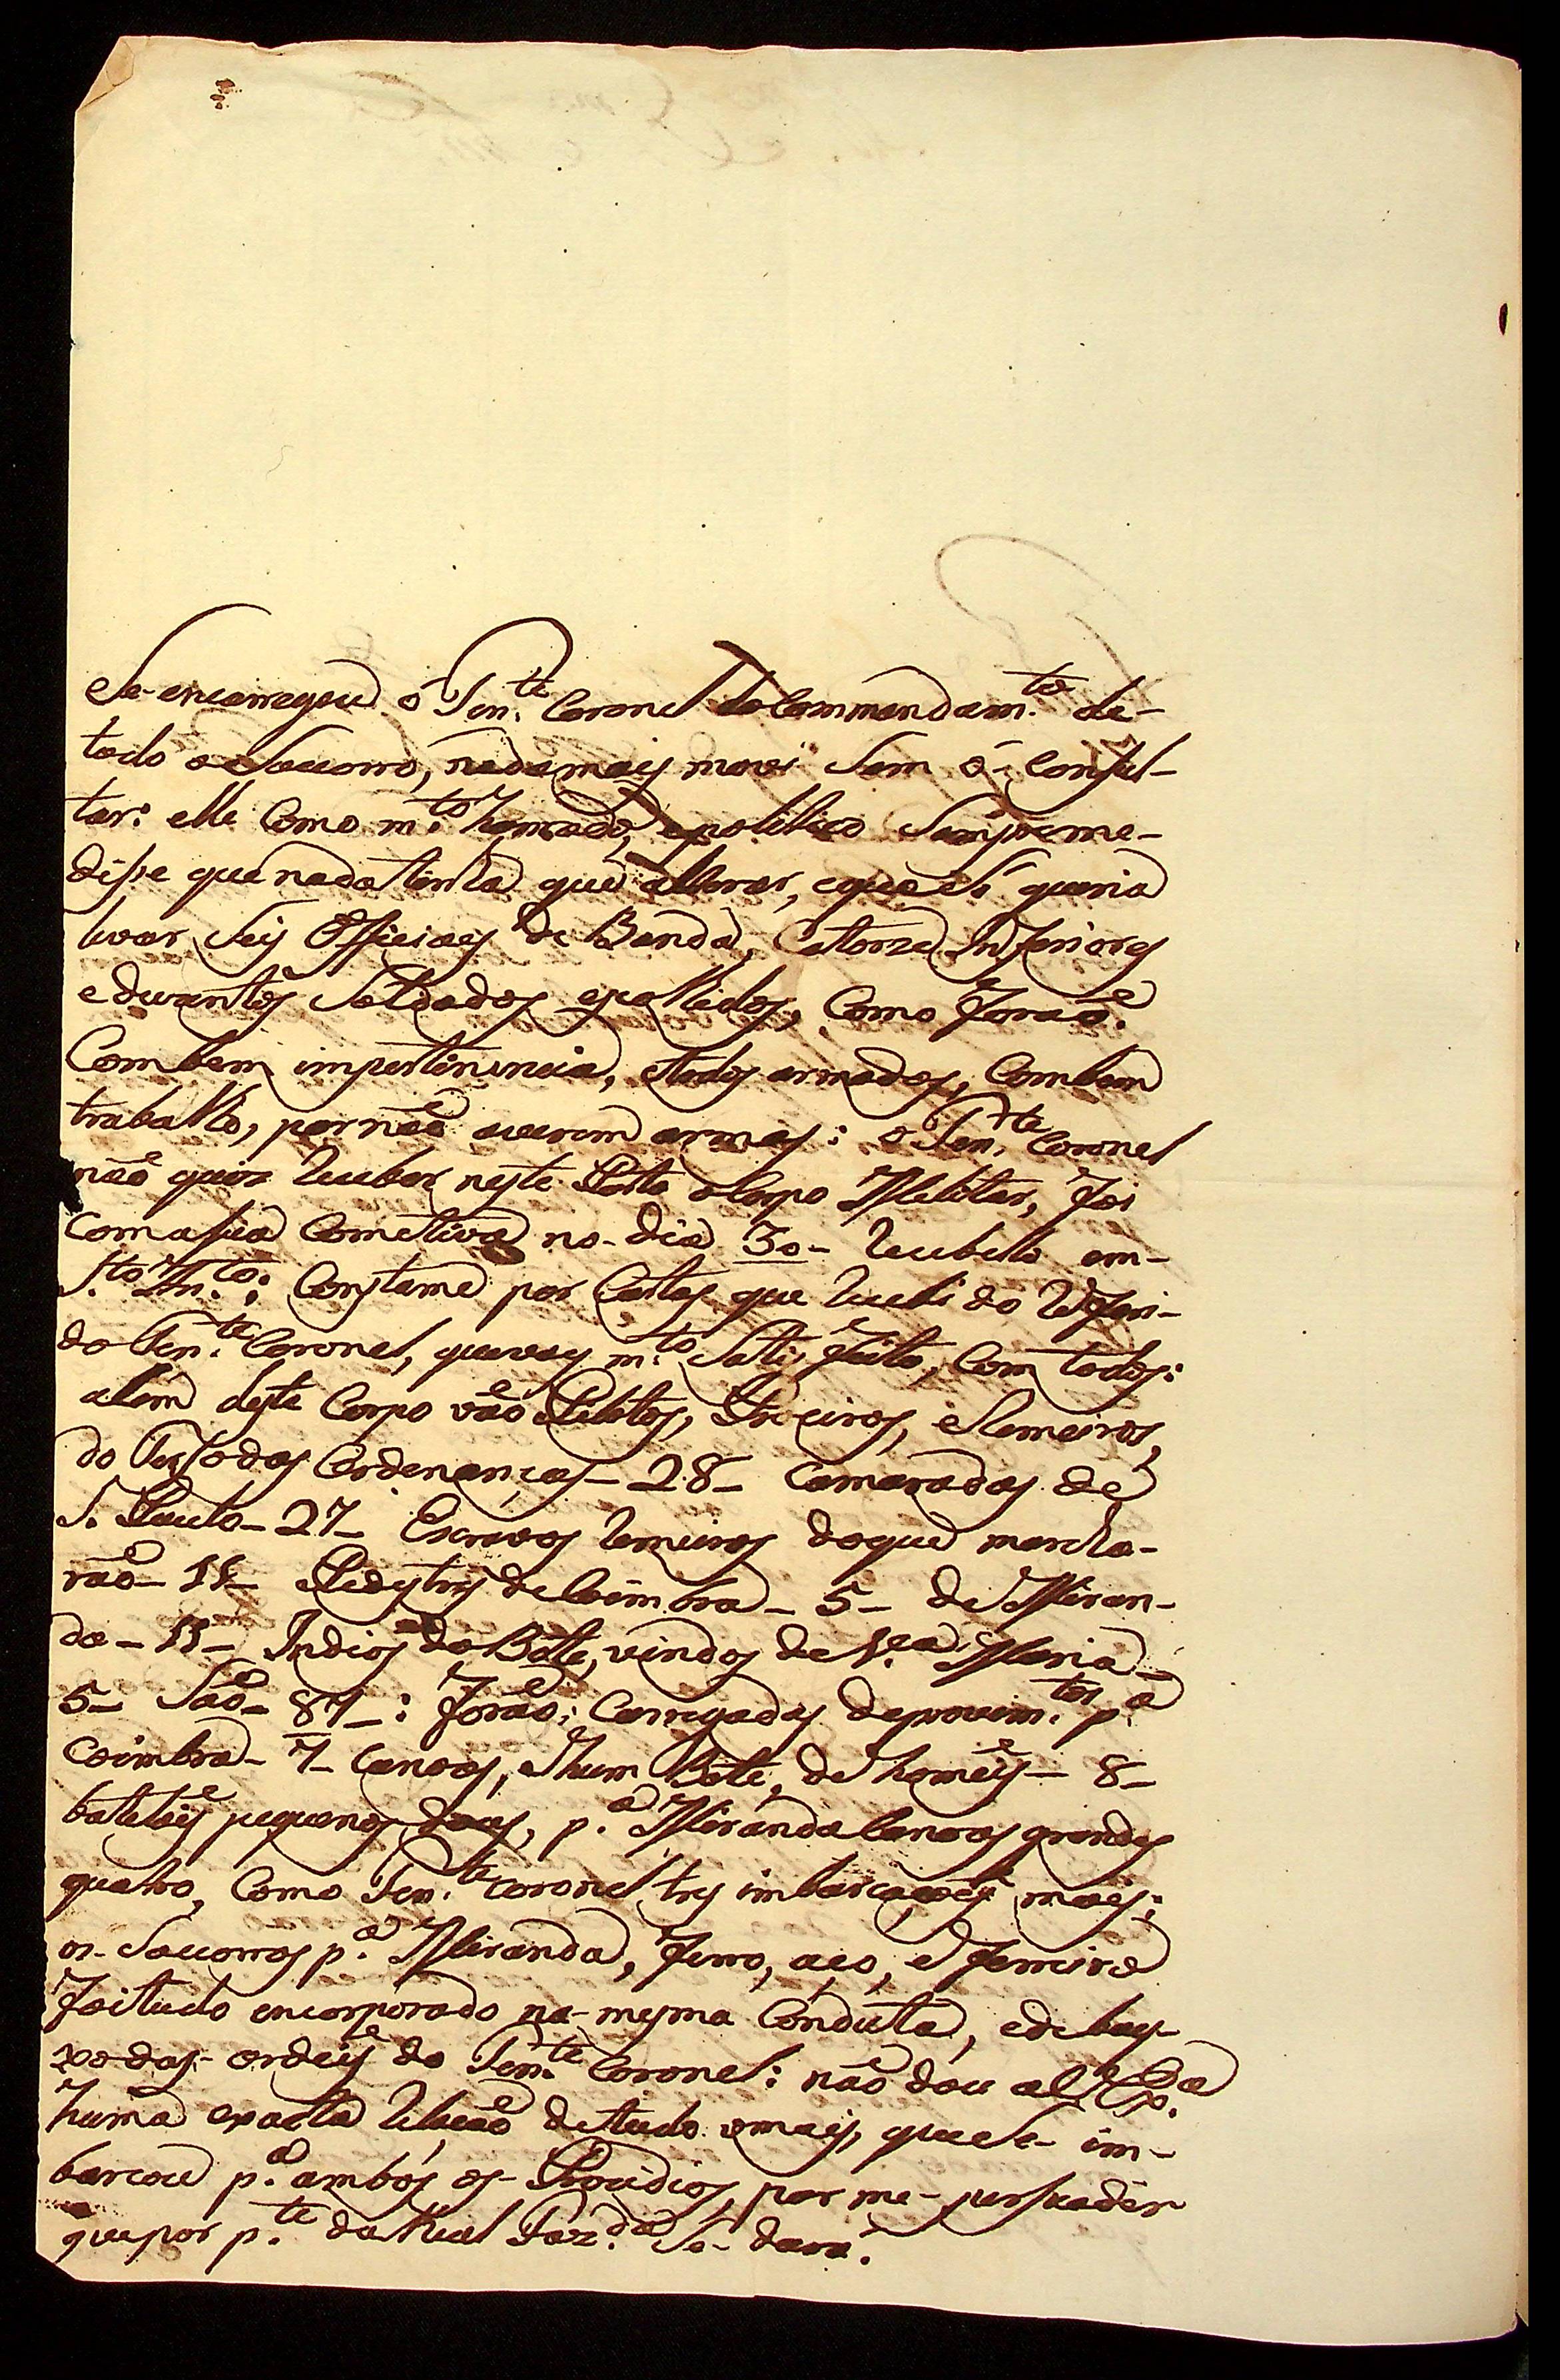 Se-encarregou o Ten.te Coronel do Commandam.to de-
todo o Socorro, nada mais movi Sem o- Consul-
tar: elle Como m.to honrado, e politico Sempre me-
disse que nada tinha que alterar, e que só queria
levar Seis Officiaes de Banda, Catorze Inferiores
e duzentos Soldados escolhidos, Como forão.
Com bem impertinencia, e todos armados, Com bem
trabalho, por não averem armas: o Ten.te Coronel
não quiz receber neste Porto o Corpo Militar, foi
com a sua Cometiva no-dia 30- recebello em-
S.to An.to: Consta me por Cartas que recebi do referi-
do Ten.te Coronel, que vay m.to Satisfeito, Com todos:
alem deste Corpo vão Pilotos, Proeiros, e Remeiros,
do Terso das Ordenanças- 28- Camaradas de
S. Paulo- 27- Escravos remeiros do que marcha-
rão- 11- Pedestres de Coimbra- 5- de Miran-
da- 11- Indios do Bote, vindos de V.a Maria-
5- São- 87-: forão; Carregadas de provim.tos p.a
Coimbra- 7- Canoas, e hum Bote, de homẽs- 8-
batelõis pequenos dous, p.a Miranda Canoas grandes
quatro, Com o Ten.te Coronel tres imbarcaçoẽs mais:
os-Socorros p.a Miranda, ferro, aço, e ferreiro
foi tudo encorporado na-mesma Conducta, e de bay-
xo das-ordeis do Ten.te Coronel: não dou a
huma exacta relação de tudo o mais, que Se- im-
barcou p.a ambos os-Prezidios, por me-persuadir
que por p.te da Real Faz.da Se-dará.